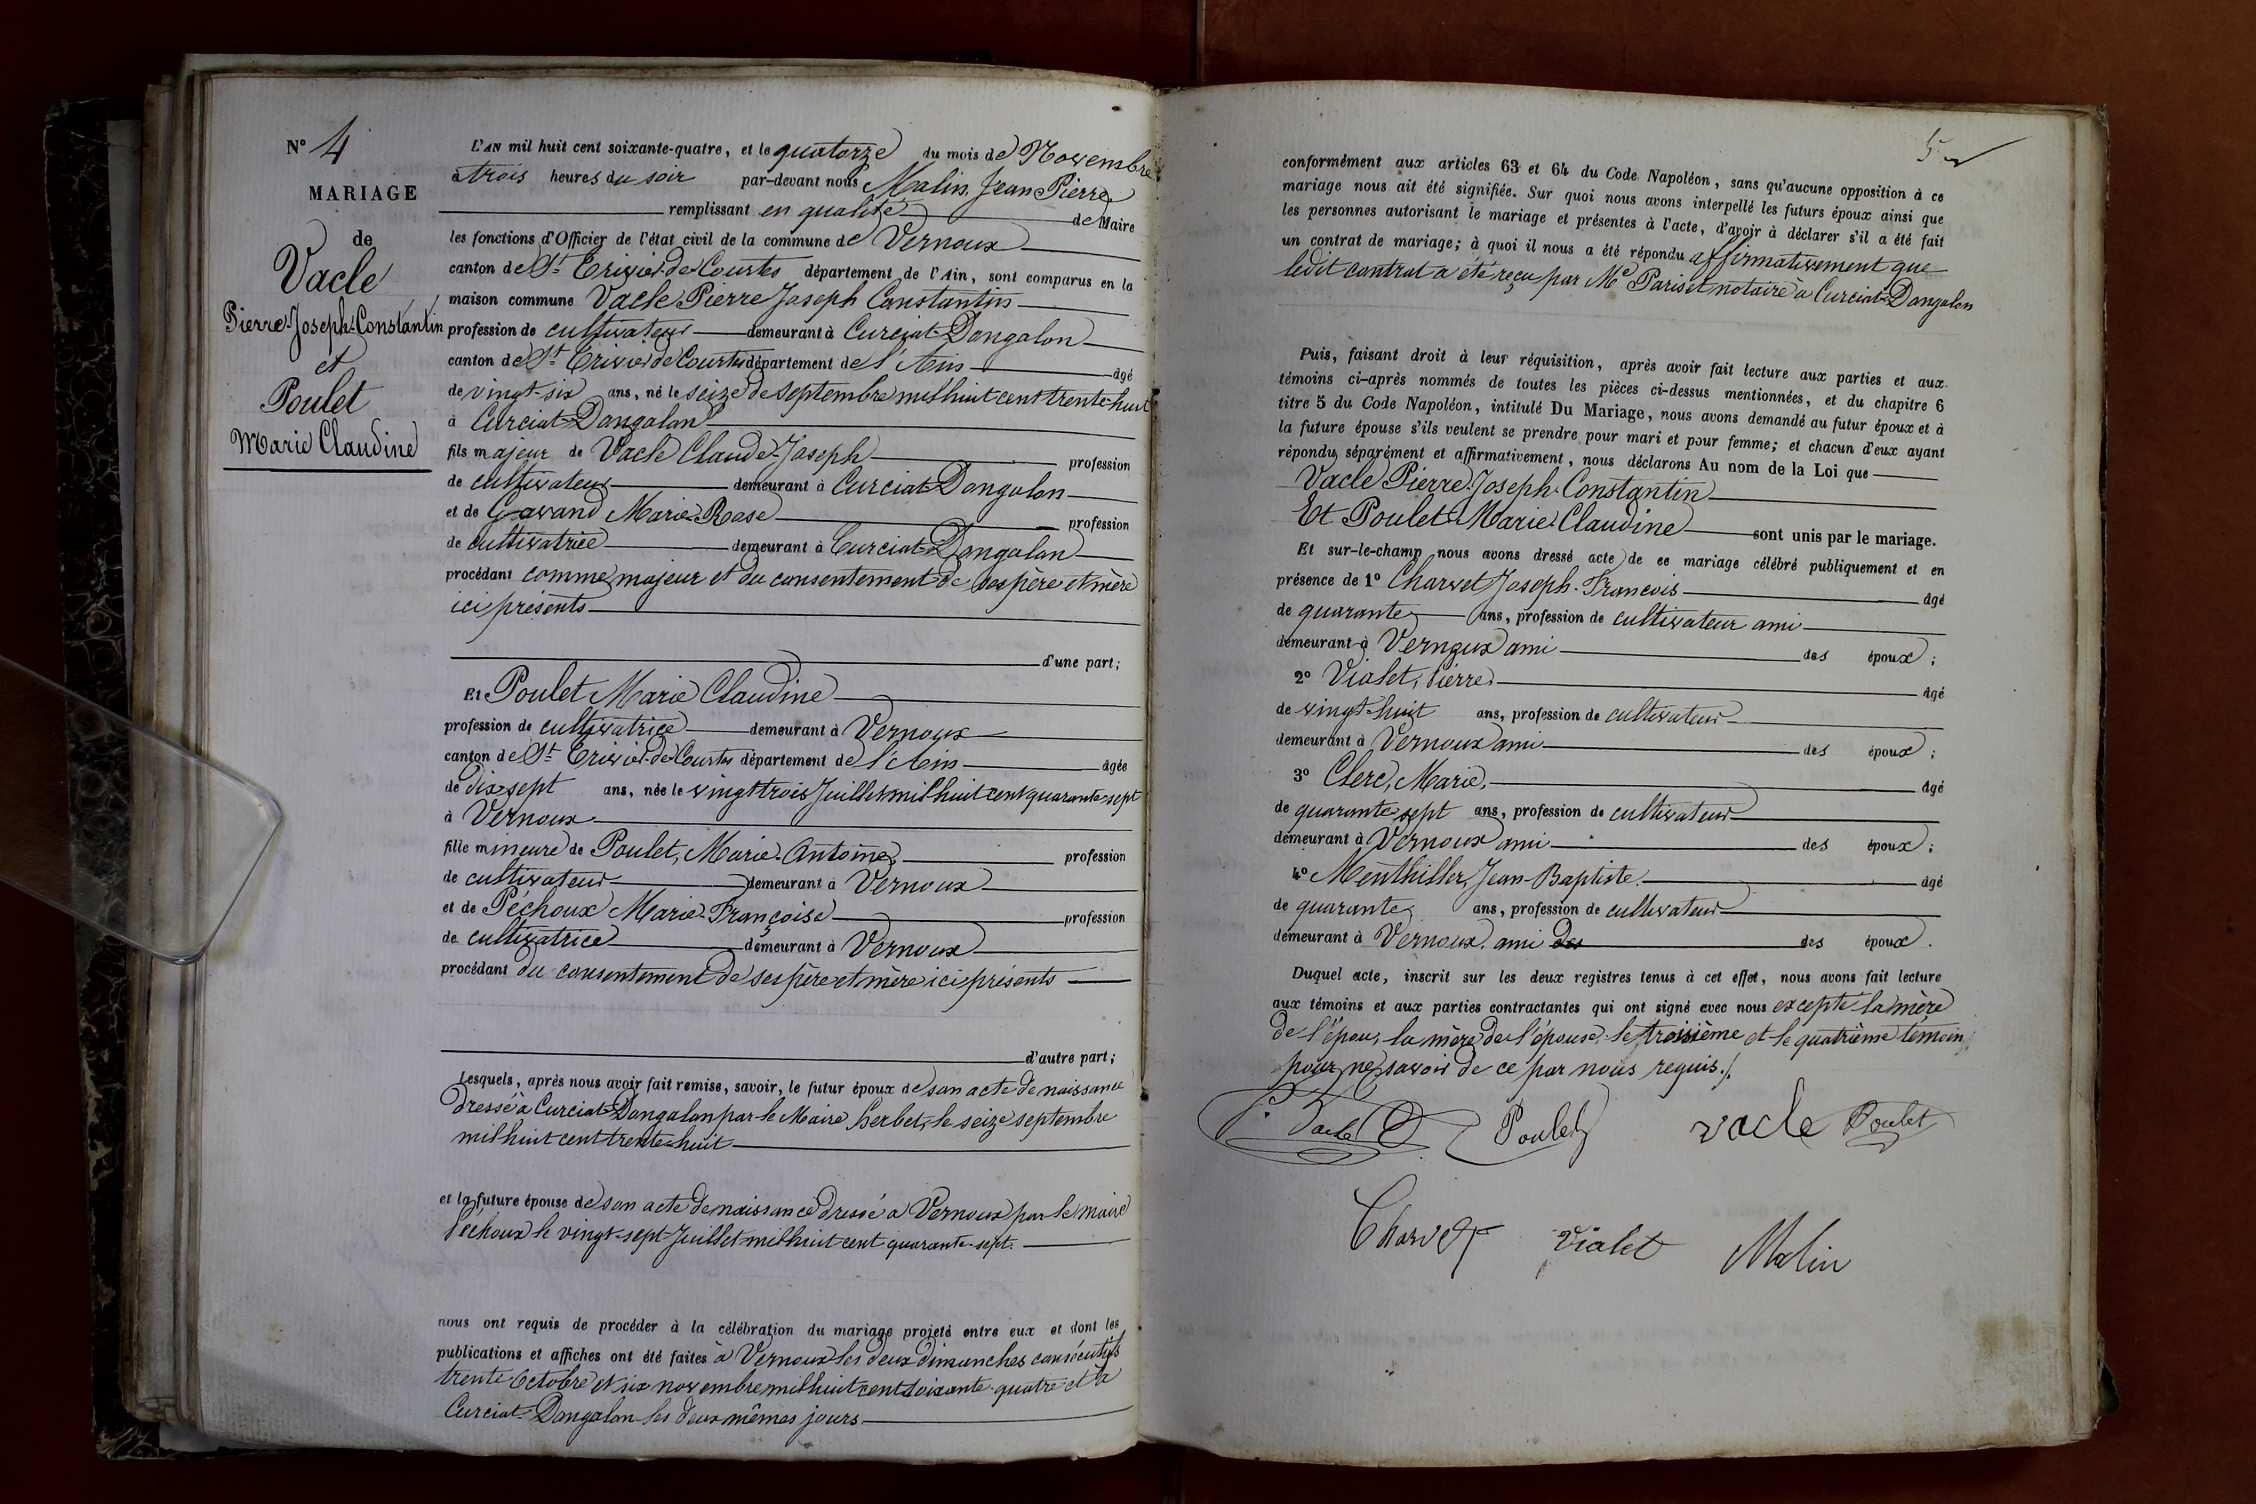 N° 4
MARIAGE
de
Vacle
Pierre-Joseph-Constantin
et
Poulet
Marie Claudine
L'AN mil huit cent soixante-quatre, et le quatorze du mois de Novembre
à trois heures du soir par-devant nous Malin, Jean Pierre
remplissant en qualité de Maire
les fonctions d'Officier de l'état civil de la commune de Vernoux
canton de St Trivier-de-Courtes département de l'Ain, sont comparus en la
maison commune Vacle Pierre Joseph Constantin
profession de cultivateur demeurant à Curciat-Dongalon
canton de St Trivier de Courtes département de l'Ain âgé
de vingt-six ans, né le seize de septembre mil huit cent trente-huit
à Curciat-Dongalon
fils majeur de Vacle Claude-Joseph profession
de cultivateur demeurant à Curciat-Dongalon
et de Gavand Marie-Rose profession
de cultivatrice demeurant à Curciat-Dongalon
procédant comme majeur et du consentement de ses père et mère
ici présents
d'une part;
Et Poulet Marie Claudine
profession de cultivatrice demeurant à Vernoux
canton de St Trivier-de-Courtes département de l'Ain âgée
de dix-sept ans, née le vingt trois Juillet mil huit cent quarante-sept
à Vernoux
fille mineure de Poulet, Marie-Antoine, profession
de cultivateur demeurant à Vernoux
et de Péchoux Marie-Françoise profession
de cultivatrice demeurant à Vernoux
procédant du consentement de ses père et mère ici présents
d'autre part;
Lesquels, après nous avoir fait remise, savoir, le futur époux de son acte de naissance
dressé à Curciat-Dongalon par le Maire Herbet, le seize septembre
mil huit cent trente-huit
et la future épouse de son acte de naissance dressé à Vernoux par le maire
Péchoux le vingt-sept Juillet mil huit cent quarante-sept.
nous ont requis de procéder à la célébration du mariage projeté entre eux et dont les
publications et affiches ont été faites à Vernoux les deux dimanches consécutifs
trente Octobre et six novembre mil huit cent soixante-quatre et à
Curciat-Dongalon les deux mêmes jours
5
conformément aux articles 63 et 64 du Code Napoléon, sans qu'aucune opposition à ce
mariage nous ait été signifiée. Sur quoi nous avons interpellé les futurs époux ainsi que
les personnes autorisant le mariage et présentes à l'acte, d'avoir à déclarer s'il a été fait
un contrat de mariage; à quoi il nous a été répondu affirmativement que
ledit contrat a été reçu par Me Pariset notaire à Curciat-Dongalon
Puis, faisant droit à leur réquisition, après avoir fait lecture aux parties et aux
témoins ci-après nommés de toutes les pièces ci-dessus mentionnées, et du chapitre 6
titre 5 du Code Napoléon, intitulé Du Mariage, nous avons demandé au futur époux et à
la future épouse s'ils veulent se prendre pour mari et pour femme; et chacun d'eux ayant
répondu séparément et affirmativement, nous déclarons Au nom de la Loi que
Vacle Pierre-Joseph-Constantin
Et Poulet-Marie-Claudine sont unis par le mariage.
Et sur-le-champ nous avons dressé acte de ce mariage célébré publiquement et en
présence de 1° Charvet Joseph-François âgé
de quarante ans, profession de cultivateur ami
demeurant à Vernoux ami des époux;
2° Vialet, Pierre, âgé
de vingt-huit ans, profession de cultivateur
demeurant à Vernoux ami des époux;
3° Clerc, Marie, âgé
de quarante sept ans, profession de cultivateur
demeurant à Vernoux ami des époux;
4° Menthiller, Jean-Baptiste. âgé
de quarante ans, profession de cultivateur
demeurant à Vernoux, ami des des époux.
Duquel acte, inscrit sur les deux registres tenus à cet effet, nous avons fait lecture
aux témoins et aux parties contractantes qui ont signé avec nous excepté la mère
de l'époux, la mère de l'épouse, le troisième et le quatrième témoin
pour ne savoir de ce par nous requis./.
Vacle Poulet vacle Poulet
Charvet Vialet Malin